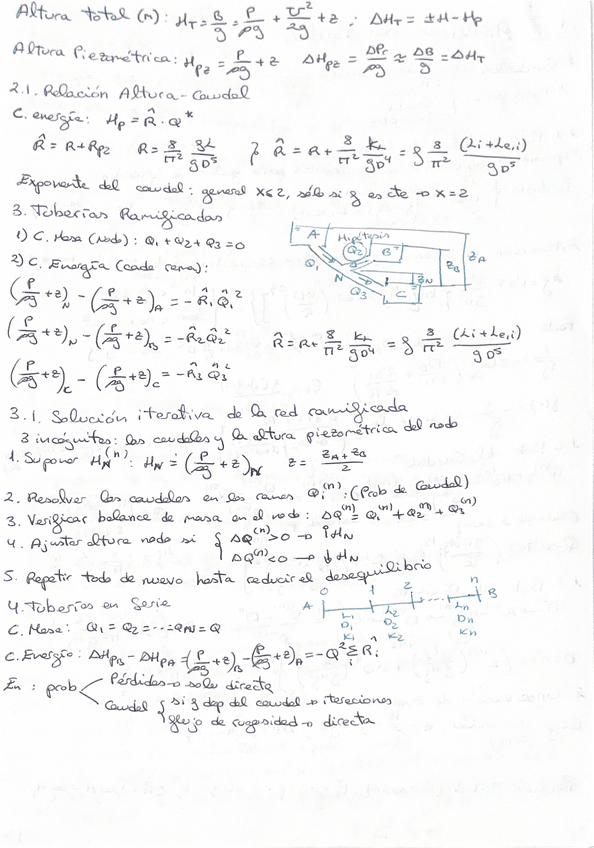 Altura total (m): H_T = B/g = P/ρg + v²/2g + z ; ΔH_T = ±H - Hp
Altura Piezométrica: H_pz = P/ρg + z ΔH_pz = ΔPr/ρg ≈ ΔB/g = ΔH_T
2.1. Relación Altura-Caudal
C. energía: Hp = R̂ · Q^x
R̂ = R + Rp2 R = 8/π² ƒL/gD⁵ } R̂ = R + 8/π² k_L/gD⁴ = ƒ 8/π² (Li + Le,i)/gD⁵
Exponente del caudal: general x≤2, sólo si ƒ es cte → x = 2
3. Tuberías Ramificadas
1) C. Masa (Nodo): Q₁ + Q₂ + Q₃ = 0
2) C. Energía (cada rama):
(P/ρg + z)_N - (P/ρg + z)_A = - R̂₁Q̂₁²
(P/ρg + z)_N - (P/ρg + z)_B = - R̂₂Q̂₂² R̂ = R + 8/π² k_L/gD⁴ = ƒ 8/π² (Li + Le,i)/gD⁵
(P/ρg + z)_C - (P/ρg + z)_C = - R̂₃Q̂₃²
A Q₂ B Q₁ N Q₃ C z_N z_B z_A
3.1. Solución iterativa de la red ramificada
3 incógnitas: los caudales y la altura piezométrica del nodo
1. Suponer H_N^(n): H_N = (P/ρg + z)_N z = (z_A + z_B)/2
2. Resolver los caudales en las ramas Q_i^(n) : (Prob de Caudal)
3. Verificar balance de masa en el nodo: ΔQ^(n) = Q₁^(n) + Q₂^(n) + Q₃^(n)
4. Ajustar altura nodo si { ΔQ^(n) > 0 → ↑H_N
ΔQ^(n) < 0 → ↓H_N
5. Repetir todo de nuevo hasta reducir el desequilibrio
4. Tuberías en Serie
A 0 1 2 n B
L₁ L₂ Ln
D₁ D₂ Dn
K₁ K₂ Kn
C. Masa: Q₁ = Q₂ = ··· = Q_N = Q
C. Energía: ΔHp_B - ΔHp_A = (P/ρg + z)_B - (P/ρg + z)_A = - Q² Σ R̂i
En : prob < Pérdidas → solu directa
Caudal { si ƒ dep del caudal → iteraciones
flujo de rugosidad → directa